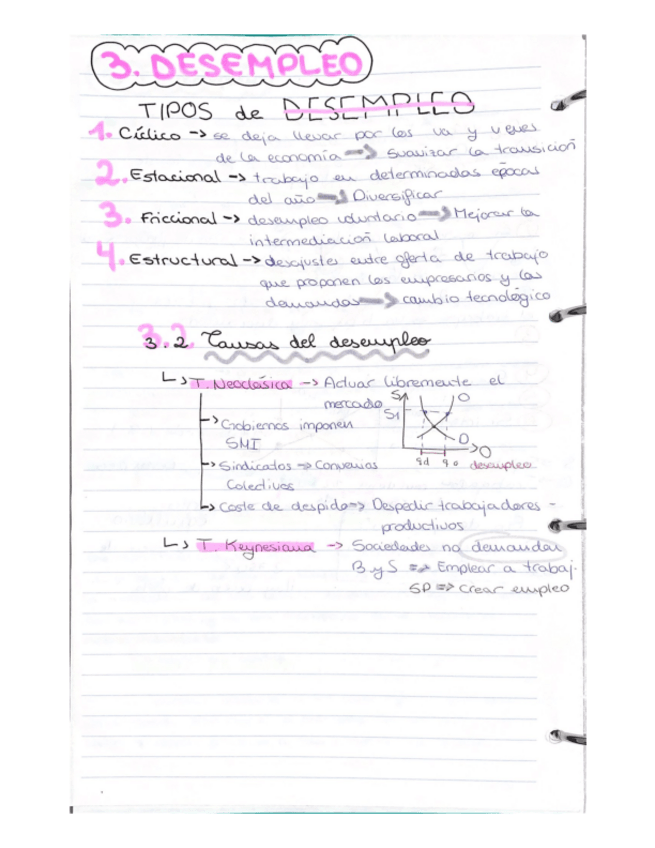 3. DESEMPLEO
TIPOS de DESEMPLEO
1. Cíclico -> se deja llevar por los va y venes
de la economía => Suavizar la transición
2. Estacional -> trabajo en determinadas épocas
del año => Diversificar
3. Friccional -> desempleo voluntario => Mejorar la
intermediación laboral
4. Estructural -> desajustes entre oferta de trabajo
que proponen los empresarios y las
demandas => cambio tecnológico
3.2. Causas del desempleo
↳ T. Neoclásica -> Actuar libremente el
mercado
-> Gobiernos imponen
SMI
-> Sindicatos => Convenios
Colectivos
-> Coste de despido => Despedir trabajadores -
productivos
S
S1
O
D
O
qd qo desempleo
↳ T. Keynesiana -> Sociedades no demandan
B y S => Emplear a trabaj.
SP => Crear empleo